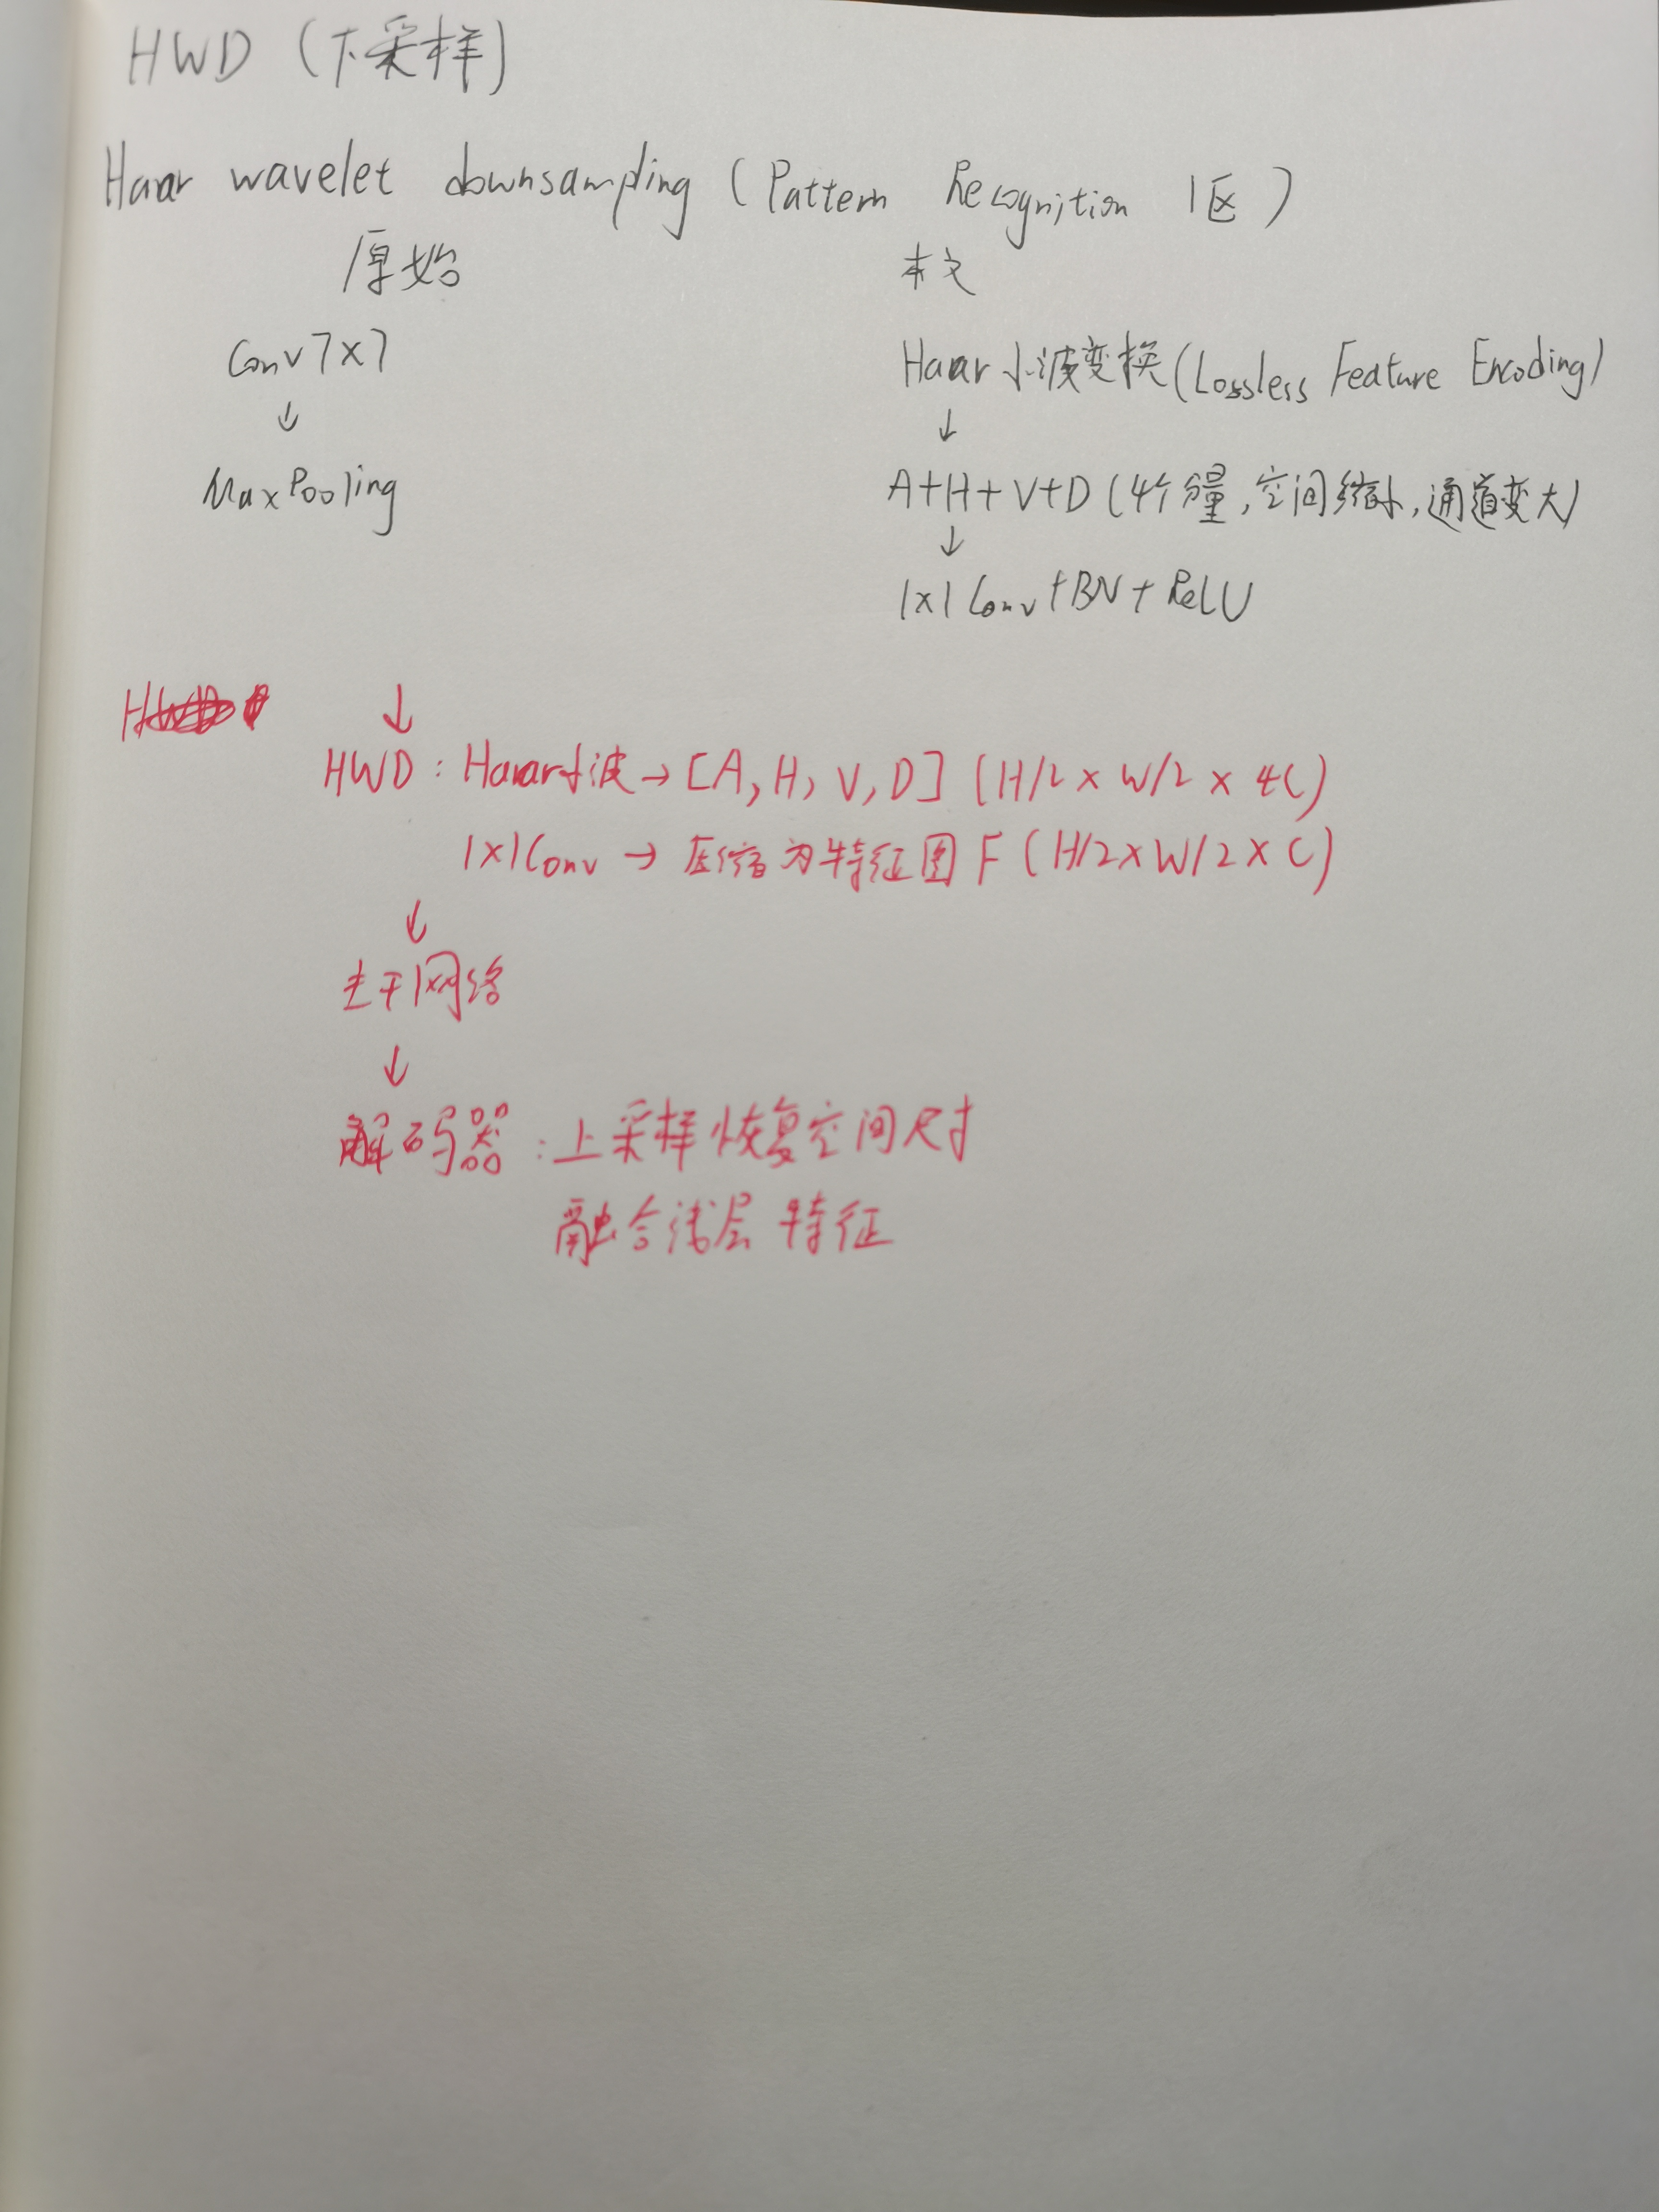 HWD (下采样)
Haar wavelet downsampling (Pattern Recognition 1区)
原始
本文
Conv 7×7
↓
MaxPooling
Haar小波变换(Lossless Feature Encoding)
↓
A+H+V+D (4个分量,空间缩小,通道变大)
↓
1×1 Conv+BN+ReLU
↓
HWD: Haar小波→[A, H, V, D] (H/2 × W/2 × 4C)
1×1Conv → 压缩为特征图 F (H/2×W/2×C)
↓
主干网络
↓
解码器:上采样恢复空间尺寸
融合浅层特征